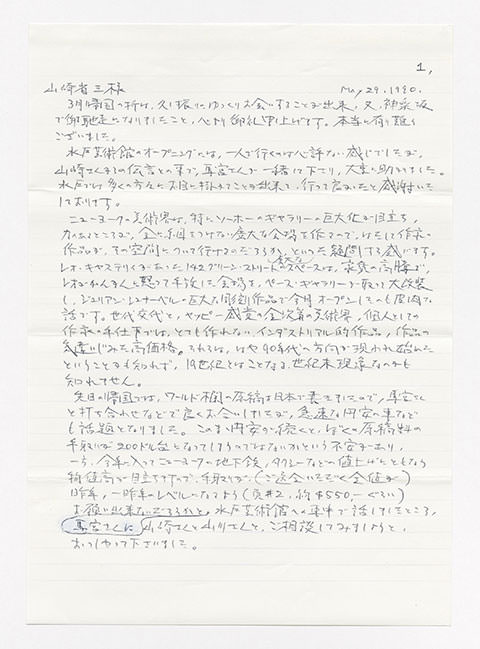 1,
山崎省三様 May, 29. 1990.
3月帰国の折は、久し振りにゆっくりお会いすることが出来、又、神楽坂
で御馳走になりましたこと、心より御礼申上げます。本当に有り難う
ございました。
水戸芸術館のオープニングには、一人で行くのは心許ない感じでしたが、
山崎さんよりの伝言との事で、馬宮さんが一緒に下さり、大変に助かりました。
水戸では多くの方々にお目に掛れてことが出来て、行って良かったと感謝いた
しております。
ニューヨークの美術界は、特にソーホーのギャラリーの巨大化が目立ち、
作品が、その空間について行けるのだろうか、といった疑問する感じです。
レオ・キャステリイがあった142グリーン・ストリートのスペースは、家賃の高騰で、
レオがかんかんに怒って手放した会場を、ペース・ギャラリーが取って大改装
し、ジュリアン・シュナーベルの巨大な彫刻作品で今月オープンしたのも皮肉な
話です。世代交代と、ヤッピー感覚の金次第の美術界、個人としての
作家の手仕事では、とても作れない、インダストリアル的作品、作品の
気違いじみた高価格。それは、はや90年代への方向が現われ始めた
ということかも知れず、19世紀とはことなる、世紀末現象なのかも
知れません。
先日の帰国では、ワールド・相関の原稿は日本で書きましたので、馬宮さん
と打ち合わせなどで良くお会いしましたが、急速な円安の事など
も話題となりました。このまま円安が続くと、ぼくの原稿料の
手取りが200ドル台となってしまうのではないかという不安があり、
一方、今年に入ってニューヨークの地下鉄、タクシーなどの値上げにともなう
物価高が目立ちますので、手取りが、(ご送金いただく金額が)
昨年、一昨年のレベルになるよう(頁#2、約$550-ぐらい)
お願い出来ないだろうかと、水戸芸術館への車中で話しましたところ、
馬宮さんは、山崎さんと山川さんと、ご相談してみましょうと、
おっしゃって下さいました。